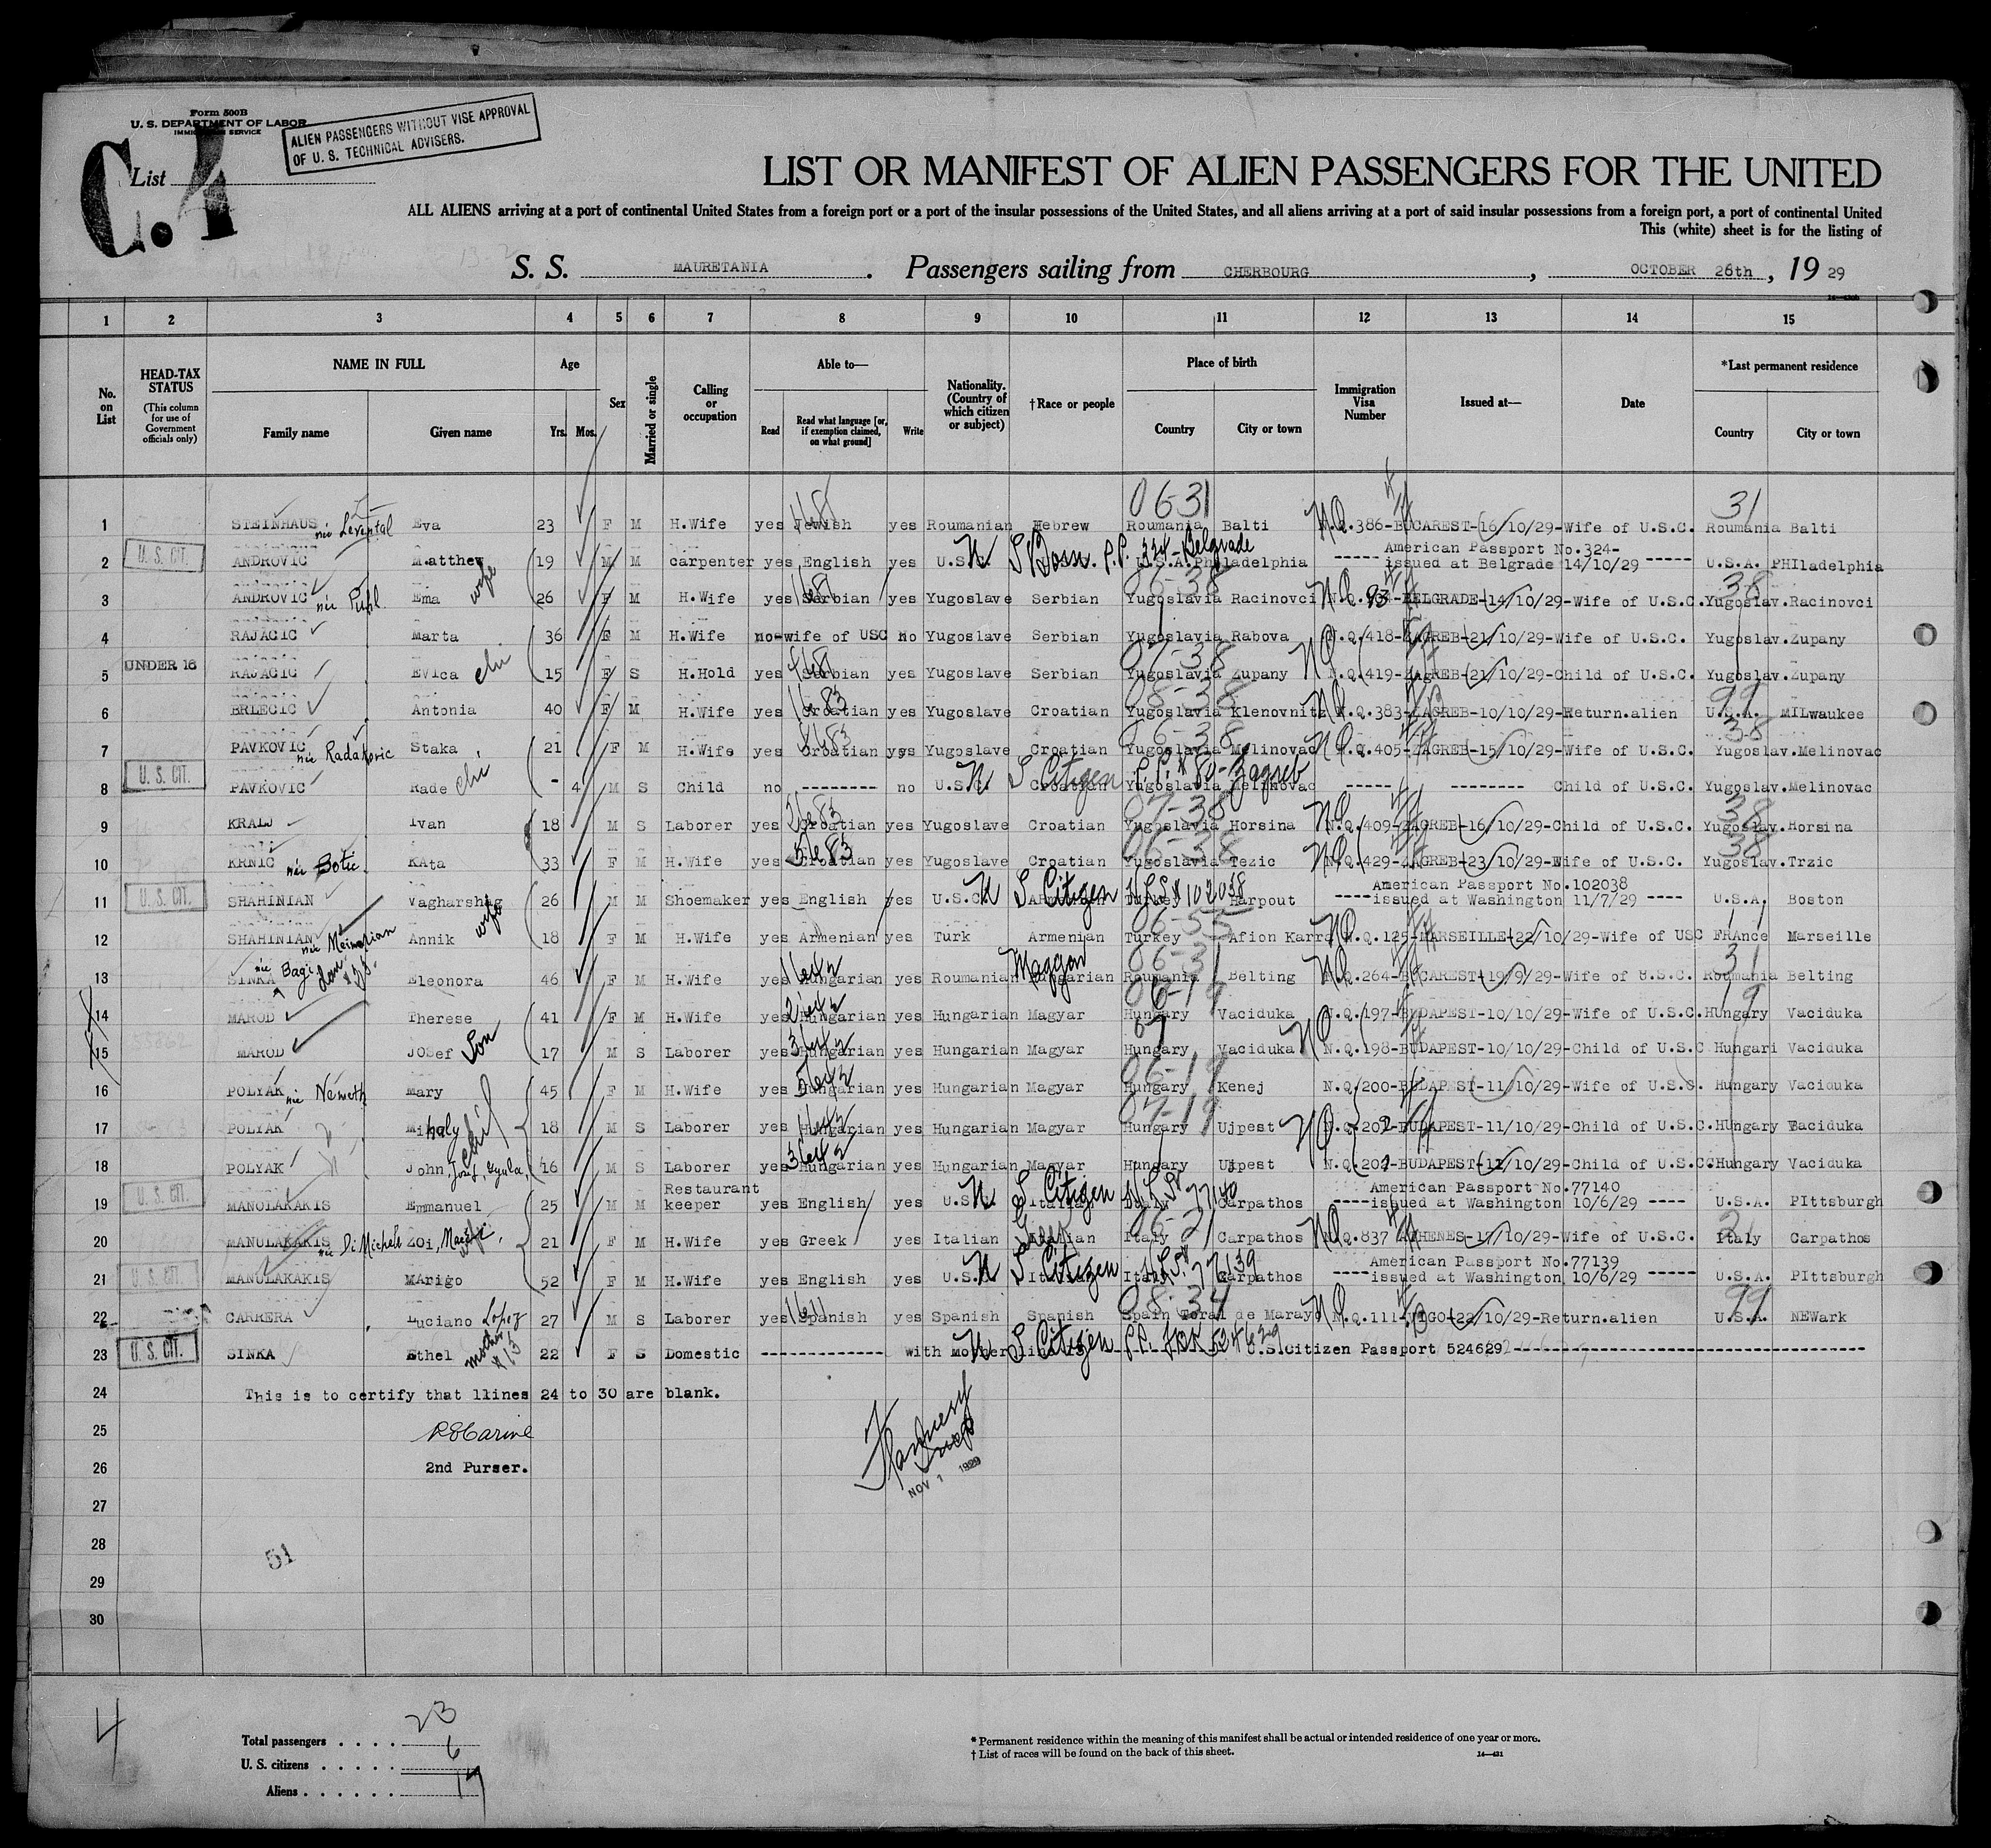 Form 500B
U. S. DEPARTMENT OF LABOR
IMMIGRATION SERVICE
ALIEN PASSENGERS WITHOUT VISE APPROVAL
OF U. S. TECHNICAL ADVISERS.
C. 4
List
LIST OR MANIFEST OF ALIEN PASSENGERS FOR THE UNITED
ALL ALIENS arriving at a port of continental United States from a foreign port or a port of the insular possessions of the United States, and all aliens arriving at a port of said insular possessions from a foreign port, a port of continental United
This (white) sheet is for the listing of
S. S. MAURETANIA . Passengers sailing from CHERBOURG , OCTOBER 26th , 19 29
1 2 3 4 5 6 7 8 9 10 11 12 13 14 15
No. on List
HEAD-TAX STATUS (This column for use of Government officials only)
NAME IN FULL Family name Given name
Age Yrs. Mos.
Sex
Married or single
Calling or occupation
Able to— Read Read what language [or, if exemption claimed, on what ground] Write
Nationality. (Country of which citizen or subject)
†Race or people
Place of birth Country City or town
Immigration Visa Number
Issued at—
Date
*Last permanent residence Country City or town
06-31 31
1 STEINHAUS née Levental Eva 23 F M H.Wife yes Jewish yes Roumanian Hebrew Roumania Balti N.Q.386-BUCAREST-16/10/29-Wife of U.S.C. Roumania Balti
2 U. S. CIT. ANDROVIC Matthew 19 M M carpenter yes English yes U.S.C. U S Born P.P. 324-Belgrade U.S.A. Philadelphia American Passport No.324- issued at Belgrade 14/10/29 U.S.A. PHIladelphia
3 ANDROVIC née Puhl Ema wife 26 F M H.Wife yes Serbian yes Yugoslave Serbian Yugoslavia Racinovci N.Q. 93-BELGRADE-14/10/29-Wife of U.S.C. Yugoslav.Racinovci
4 RAJACIC Marta 36 F M H.Wife no-wife of USC no Yugoslave Serbian Yugoslavia Rabova N.Q.418-ZAGREB-21/10/29-Wife of U.S.C. Yugoslav.Zupany
5 UNDER 16 RAJACIC EVica chi 15 F S H.Hold yes Serbian yes Yugoslave Serbian Yugoslavia Zupany N.Q.419-ZAgREB-21/10/29-Child of U.S.C. Yugoslav.Zupany
6 BRLECIC Antonia 40 F M H.Wife yes Croatian yes Yugoslave Croatian Yugoslavia Klenovnitz N.Q.383-ZAGREB-10/10/29-Return.alien U.S.A. MILwaukee
7 PAVKOVIC née Radakovic Staka 21 F M H.Wife yes Croatian yes Yugoslave Croatian Yugoslavia Melinovac N.Q.405-ZAGREB-15/10/29-Wife of U.S.C. Yugoslav.Melinovac
8 U. S. CIT. PAVKOVIC Rade chi - 4 M S Child no -------- no U.S.C. U S Citizen Croatian P.P. # 80-Zagreb Yugoslavia Melinovac ----- -------- Child of U.S.C. Yugoslav.Melinovac
9 KRALJ Ivan 18 M S Laborer yes Croatian yes Yugoslave Croatian Yugoslavia Horsina N.Q.409-ZAGREB-16/10/29-Child of U.S.C. Yugoslav.Horsina
10 KRNIC née Botic KAta 33 F M H.Wife yes Croatian yes Yugoslave Croatian Yugoslavia Tezic N.Q.429-ZAGREB-23/10/29-Wife of U.S.C. Yugoslav.Trzic
11 U. S. CIT. SHAHINIAN Vagharshag 26 M M Shoemaker yes English yes U.S.C. U S Citizen Turkey 102038 Harpout American Passport No.102038 issued at Washington 11/7/29 U.S.A. Boston
12 SHAHINIAN Annik wife 18 F M H.Wife yes Armenian yes Turk Armenian Turkey Afion Karra N.Q.125-MARSEILLE-22/10/29-Wife of USC FRAnce Marseille
13 SINKA née Bagi Eleonora 46 F M H.Wife yes Hungarian yes Roumanian Magyar Hungarian Roumania Belting N.Q.264-BUCAREST-19/9/29-Wife of U.S.C. Roumania Belting
14 MAROD Therese 41 F M H.Wife yes Hungarian yes Hungarian Magyar Hungary Vaciduka N.Q.197-BUDAPEST-10/10/29-Wife of U.S.C.HUngary Vaciduka
15 MAROD JOSef Son 17 M S Laborer yes Hungarian yes Hungarian Magyar Hungary Vaciduka N.Q.198-BUDAPEST-10/10/29-Child of U.S.C Hungari Vaciduka
16 POLYAK née Nemeth Mary 45 F M H.Wife yes Hungarian yes Hungarian Magyar Hungary Kenej N.Q.200-BUDAPEST-11/10/29-Wife of U.S.S. Hungary Vaciduka
17 POLYAK Mihaly 18 M S Laborer yes Hungarian yes Hungarian Magyar Hungary Ujpest N.Q.202-BUDAPEST-11/10/29-Child of U.S.C.HUngary Vaciduka
18 POLYAK John, Josef, Gyula 16 M S Laborer yes Hungarian yes Hungarian Magyar Hungary Ujpest N.Q.201-BUDAPEST-11/10/29-Child of U.S.C.Hungary Vaciduka
19 U. S. CIT. MANOLAKAKIS Emmanuel 25 M M Restaurant keeper yes English yes U.S.C. U S Citizen Italy 77140 Carpathos American Passport No.77140 issued at Washington 10/6/29 U.S.A. PIttsburgh
20 MANOLAKAKIS née Di Micheli ZOi, wife 21 F M H.Wife yes Greek yes Italian Italian Greek Italy Carpathos N.Q.837 ATHENES-17/10/29-Wife of U.S.C. Italy Carpathos
21 U. S. CIT. MANOLAKAKIS MArigo 52 F M H.Wife yes English yes U.S.C. U S Citizen Italy 77139 Carpathos American Passport No.77139 issued at Washington 10/6/29 U.S.A. PIttsburgh
22 CARRERA Luciano Lopez 27 M S Laborer yes Spanish yes Spanish Spanish Spain Toral de Marayo N.Q.111-VIGO-22/10/29-Return.alien U.S.A. NEWark
23 U. S. CIT. SINKA Ethel mother #13 22 F S Domestic ------------- with Mother U S Citizen P.P. 524629 U.S.Citizen Passport 524629
24 This is to certify that llines 24 to 30 are blank.
25
26 2nd Purser.
27
28
51
29
30
NOV 1 1929
4
Total passengers . . . . 23
U. S. citizens . . . . . 6
Aliens . . . . . . 17
* Permanent residence within the meaning of this manifest shall be actual or intended residence of one year or more.
† List of races will be found on the back of this sheet.
14—431